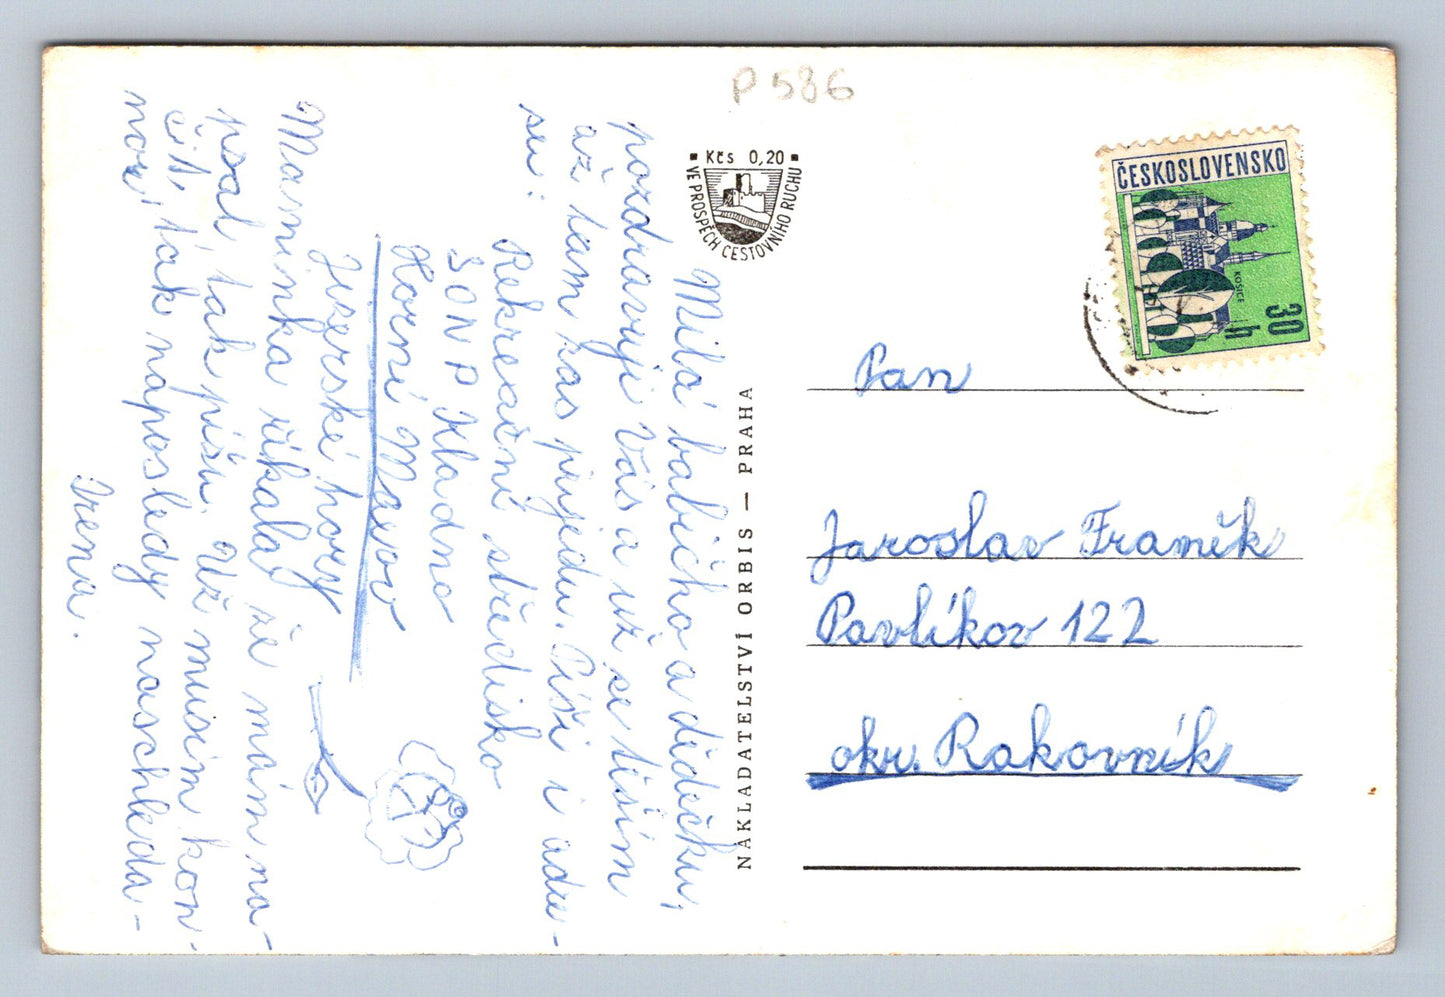 P 586
Kčs 0,20
VE PROSPĚCH CESTOVNÍHO RUCHU
ČESKOSLOVENSKO
KOŠICE
30 h
Milá babičko a dědečku,
pozdravuji Vás a už se těším
až tam zas přijedu. Píši i adre-
su:
Rekreační středisko
SONP Kladno
Horní Maxov
Jizerské hory
Maminka říkala, že mám na-
psat, tak píšu. Už musím kon-
čit, tak naposledy naschleda-
nou,
Irena.
NAKLADATELSTVÍ ORBIS — PRAHA
Pan
Jaroslav Framěk
Pavlíkov 122
okr. Rakovník